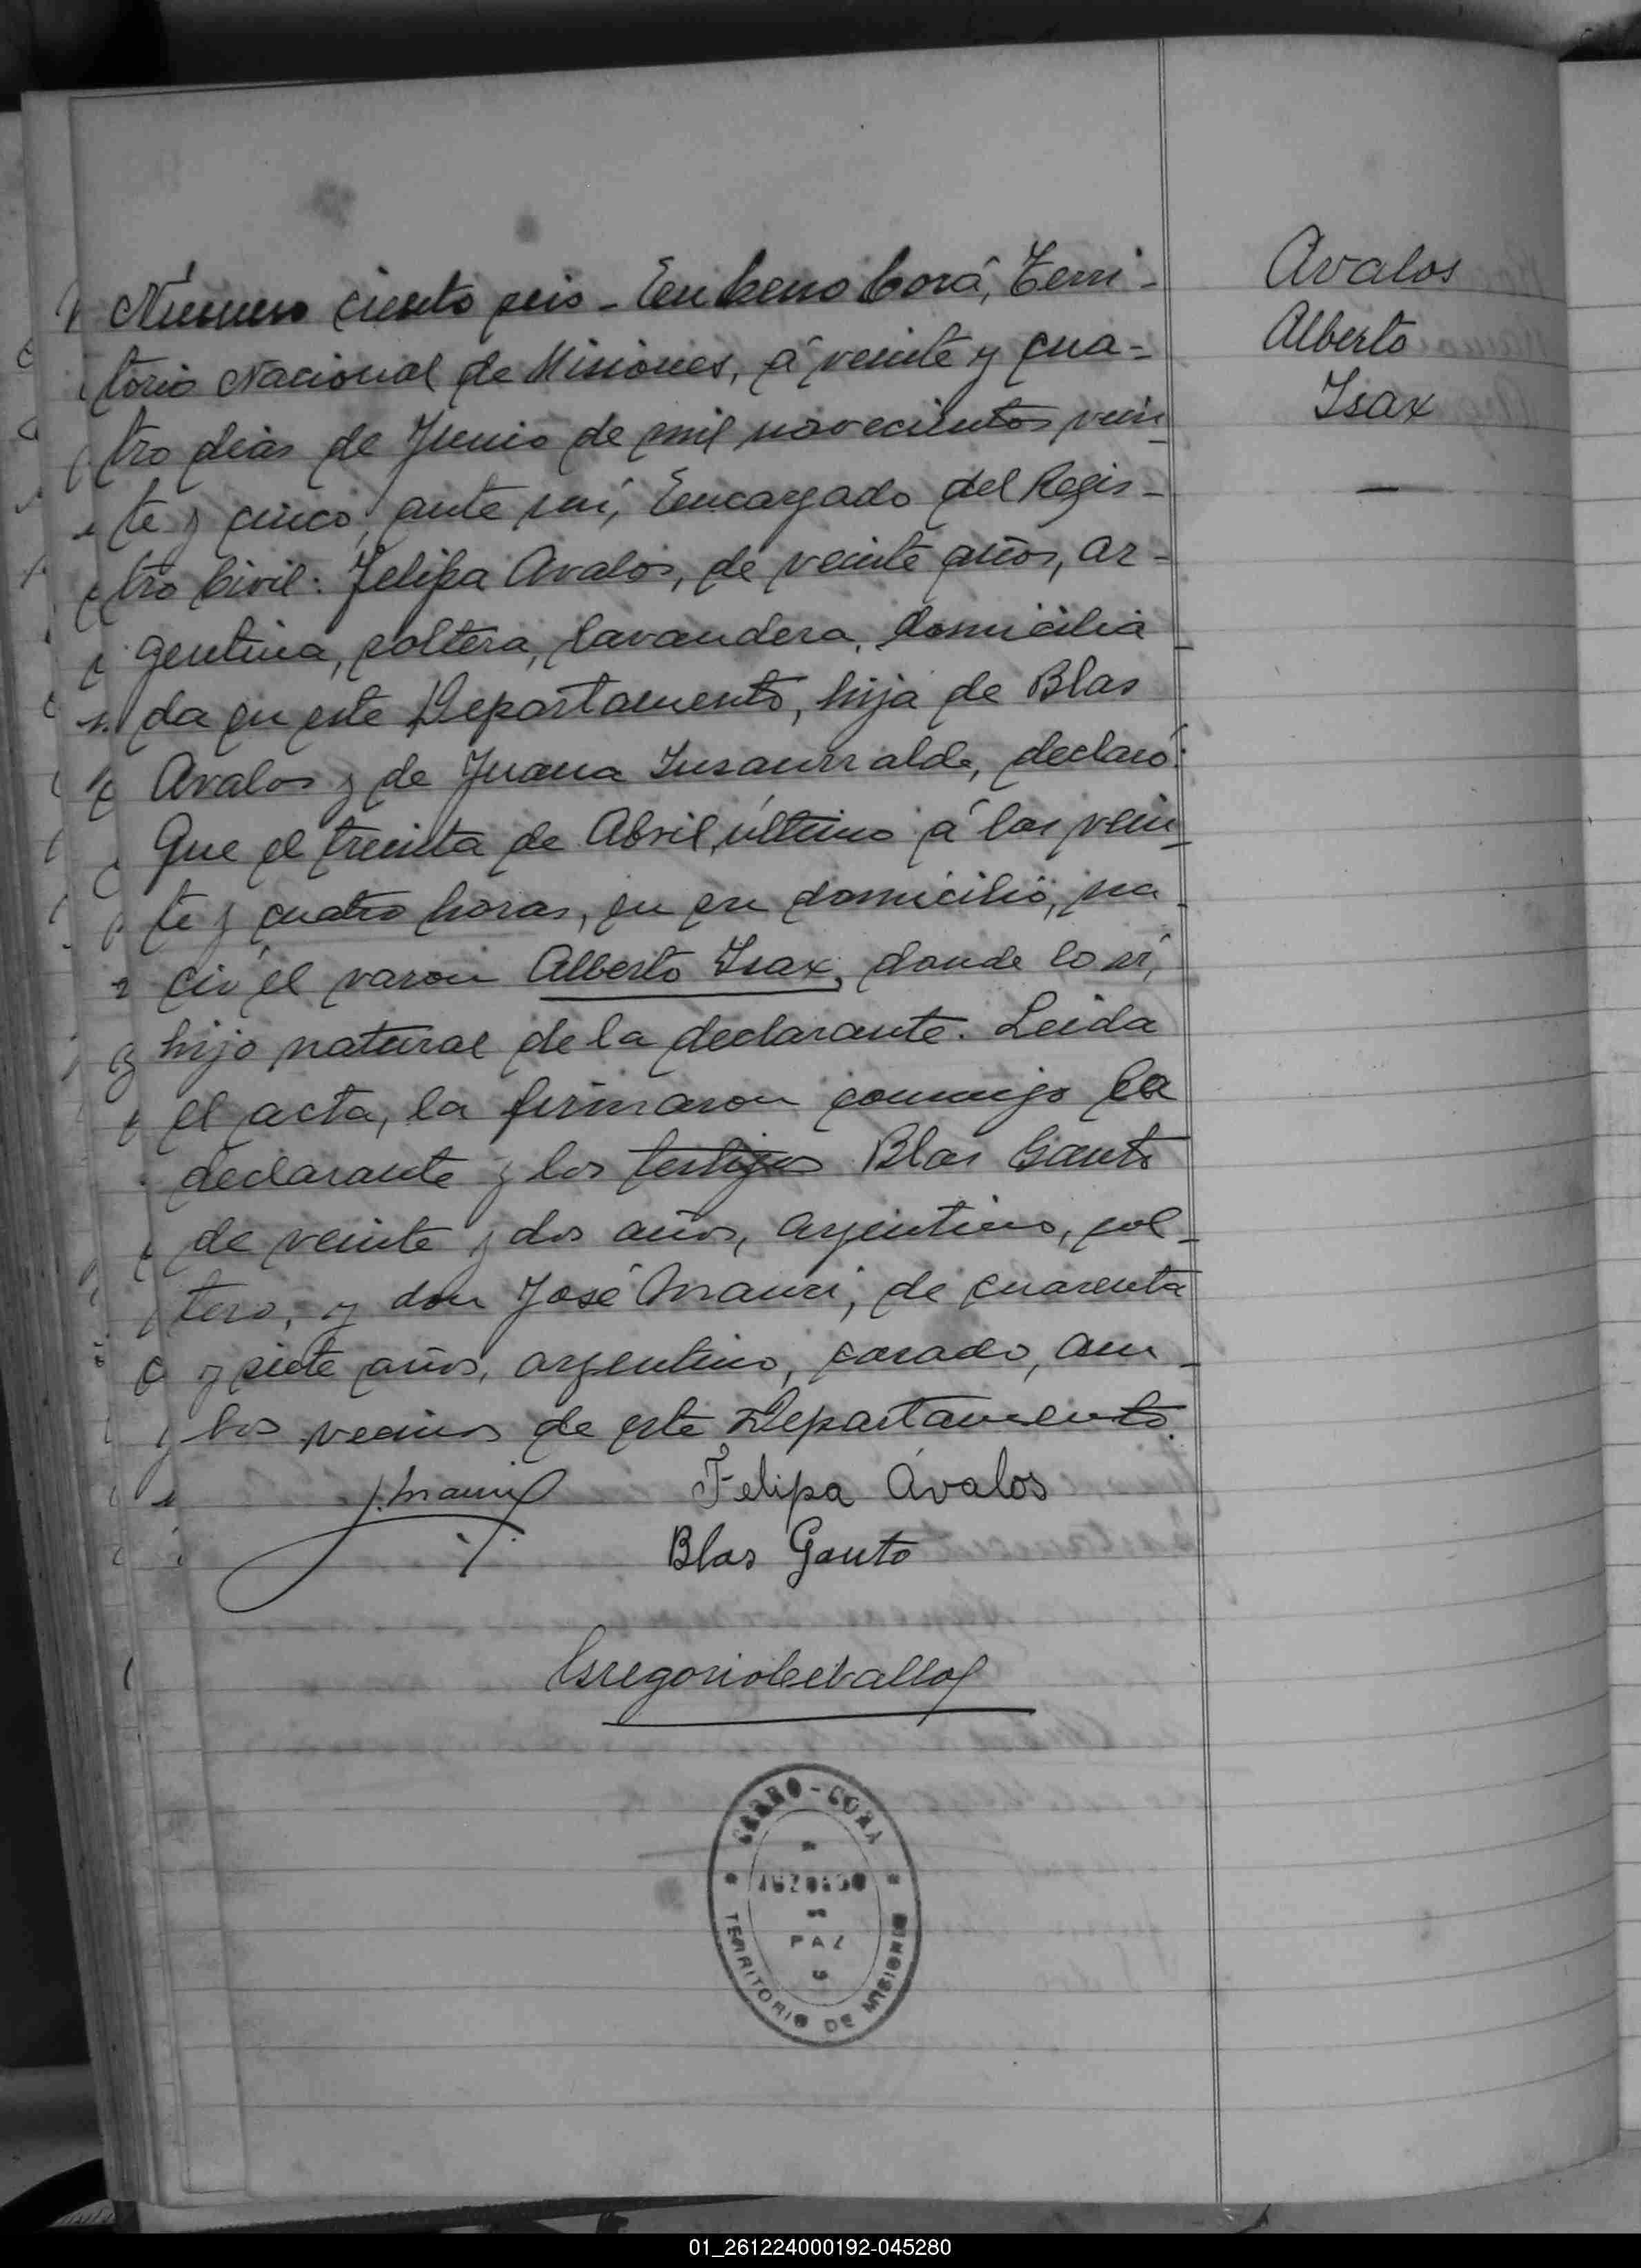 Avalos
Alberto
Isax
Número ciento seis - En Cerro Corá, Terri-
torio Nacional de Misiones, á veinte y cua-
tro dias de Junio de mil novecientos vein
te y cinco, ante mí, Encargado del Regis-
tro Civil: Felipa Avalos, de veinte años, ar-
gentina, soltera, lavandera, domicilia
da en este Departamento, hija de Blas
Avalos y de Juana Insaurralde, declaró:
Que el treinta de Abril último á las vein
te y cuatro horas, en su domicilio, na
ció el varon Alberto Isax, donde lo ví,
hijo natural de la declarante. Leida
el acta, la firmaron conmigo la
declarante y los testigos Blas Gauto
de veinte y dos años, argentino, sol-
tero, y don José Mauri, de cuarenta
y siete años, argentino, casado, am-
bos vecinos de este Departamento.
J. Mauri Felipa Avalos
Blas Gauto
Gregorio Ceballos
CERRO-CORA
JUZGADO
PAZ
TERRITORIO DE MISIONES
01_261224000192-045280